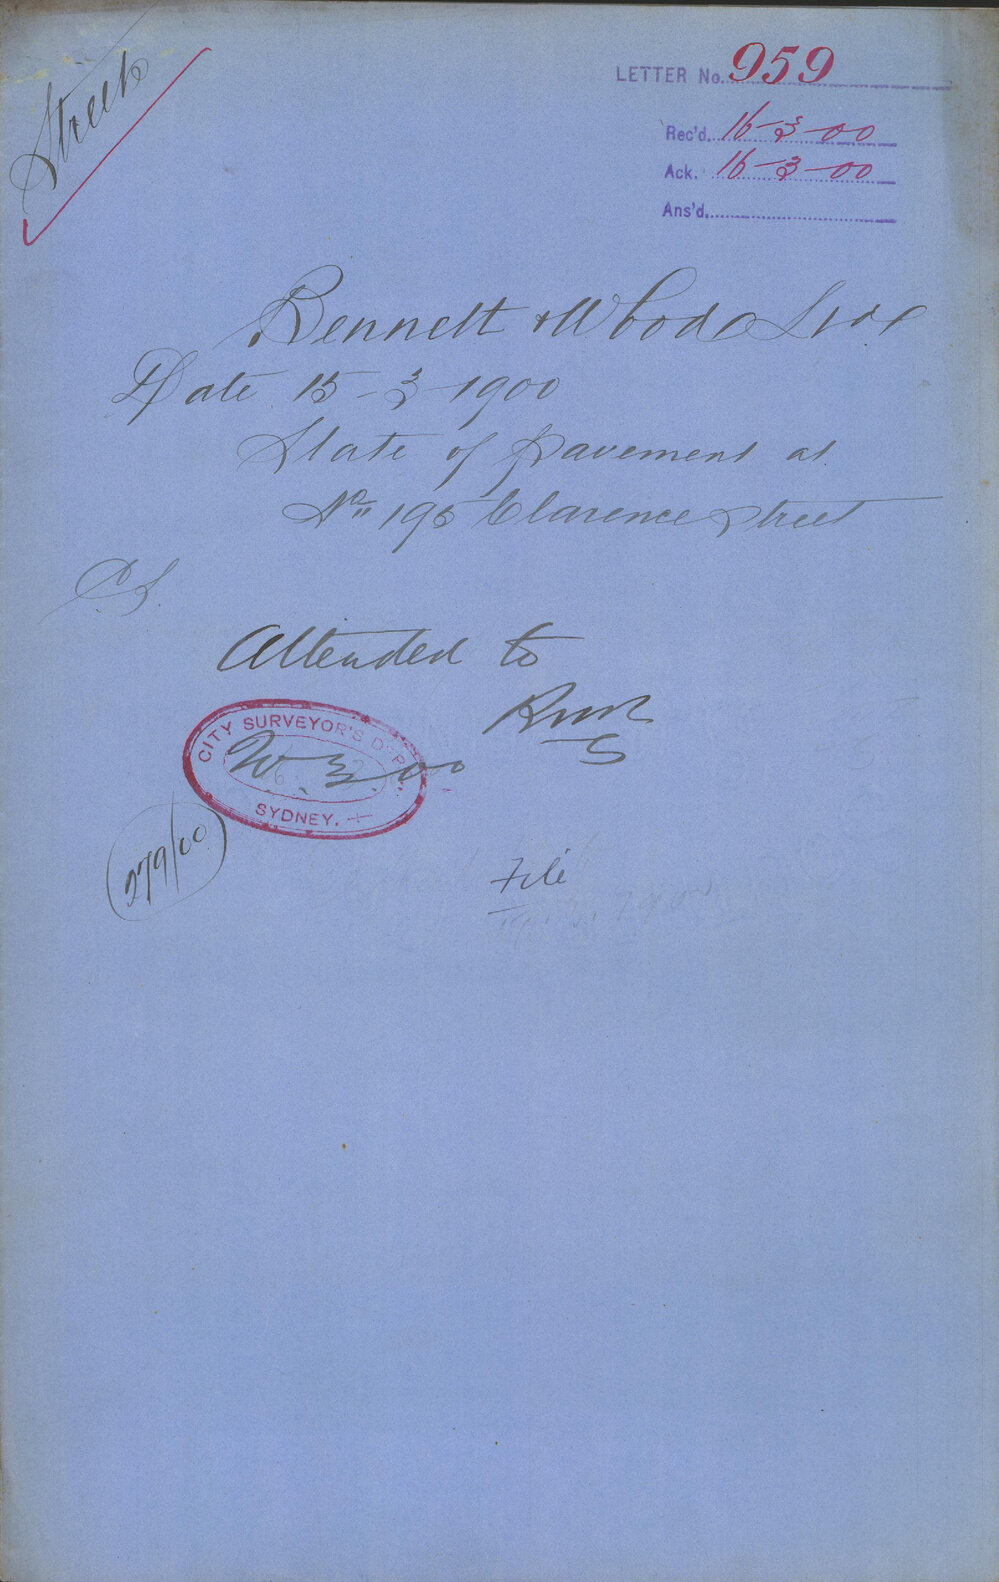 Streets
LETTER No. 959
Rec'd. 16-3-00
Ack. 16-3-00
Ans'd.
Bennett & Wood
Date 15-3-1900
State of pavement at
No 195 Clarence Street
CS
Attended to
CITY SURVEYOR'S DEP
SYDNEY.
279/00
File